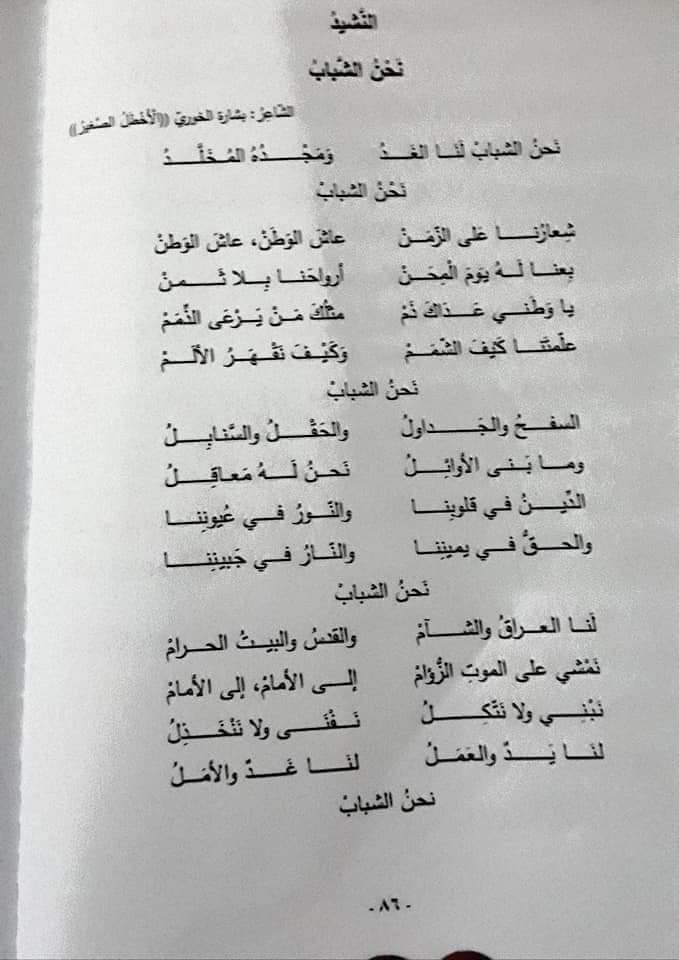 النَّشيدُ
نَحْنُ الشَّبابُ
الشّاعِرُ: بشارة الخوريّ ((الأَخطَلُ الصّغيرُ))
نَحنُ الشبابْ لَنَا الغَـــدُ وَمَجْــــدُهُ المُخَلَّـــدُ
نَحْنُ الشبابْ
شِعارُنــــا عَلى الزَّمَنْ عاشَ الوَطَنْ، عاشَ الوَطنْ
بِعنـا لَـهُ يَومَ الْمِحَـنْ أرواحَنا بِـــلا ثَـــمنْ
يا وَطَني عَــداكَ ذَمْ مثلُكَ مَنْ يَــرْعَى الذِّمَمْ
علّمتَنـا كَيفَ الشّمَـمْ وَكَيْـفَ نَقْهَـرُ الألَـمْ
نَحنُ الشبابْ
السفـحُ والجَــداولُ والحَقْــلُ والسَّنابِــلُ
ومـا بَنـى الأوائِـلُ نَحنُ لَــهُ مَعاقِــلُ
الدِّيـنُ في قلوبِنـا والنّـورُ فـي عُيونِنـا
والحـقُّ فـي يمينِنـا والنّـارُ فـي جَبينِنـــا
نَحنُ الشبابْ
لَنـا العـراقُ والشــآمْ والقدسُ والبيـتُ الحـرامْ
نَمْشي على الموتِ الزُّؤامْ إلـى الأمامْ، إلى الأمامْ
نَبْنِـي ولا نَتَّكِـــلُ نَـفْنَـى ولا نَنْخَـذِلُ
لنَـا يَــدٌ والعَمَـلُ لنَـــا غَــدٌ والأمَـلُ
نحنُ الشبابْ
- ٨٦ -